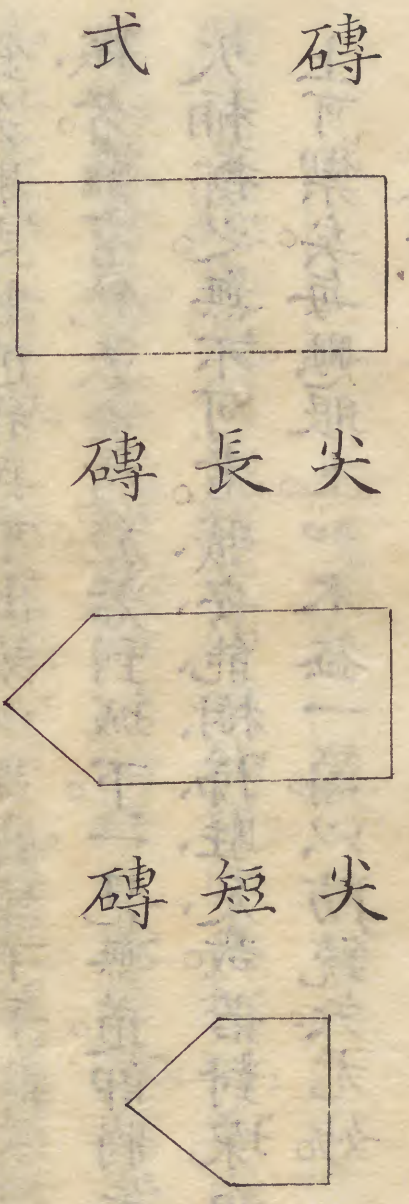 磚式
尖長磚
尖短磚